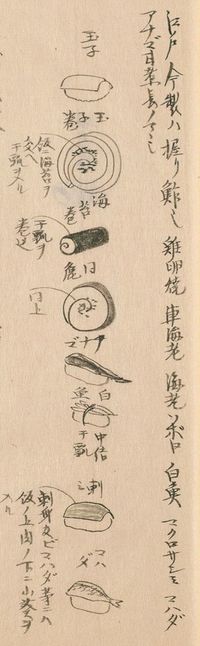 江戸今製ハ握リ鮓也 雞卵焼 車海老 海老ソボロ 白魚 マクロサシミ コハダ
アナゴ甘煮長ノマヽ也
玉子
玉子巻
飯ニ海苔ヲ
交ヘ
干瓢ヲ入ル
海苔
巻
干瓢ヲ
巻込
同
同上
アナゴ
白魚
中結
干瓢
刺ミ
刺身及ビコハダ等ニハ
飯ノ上肉ノ下ニ山葵ヲ
入ル
コハダ